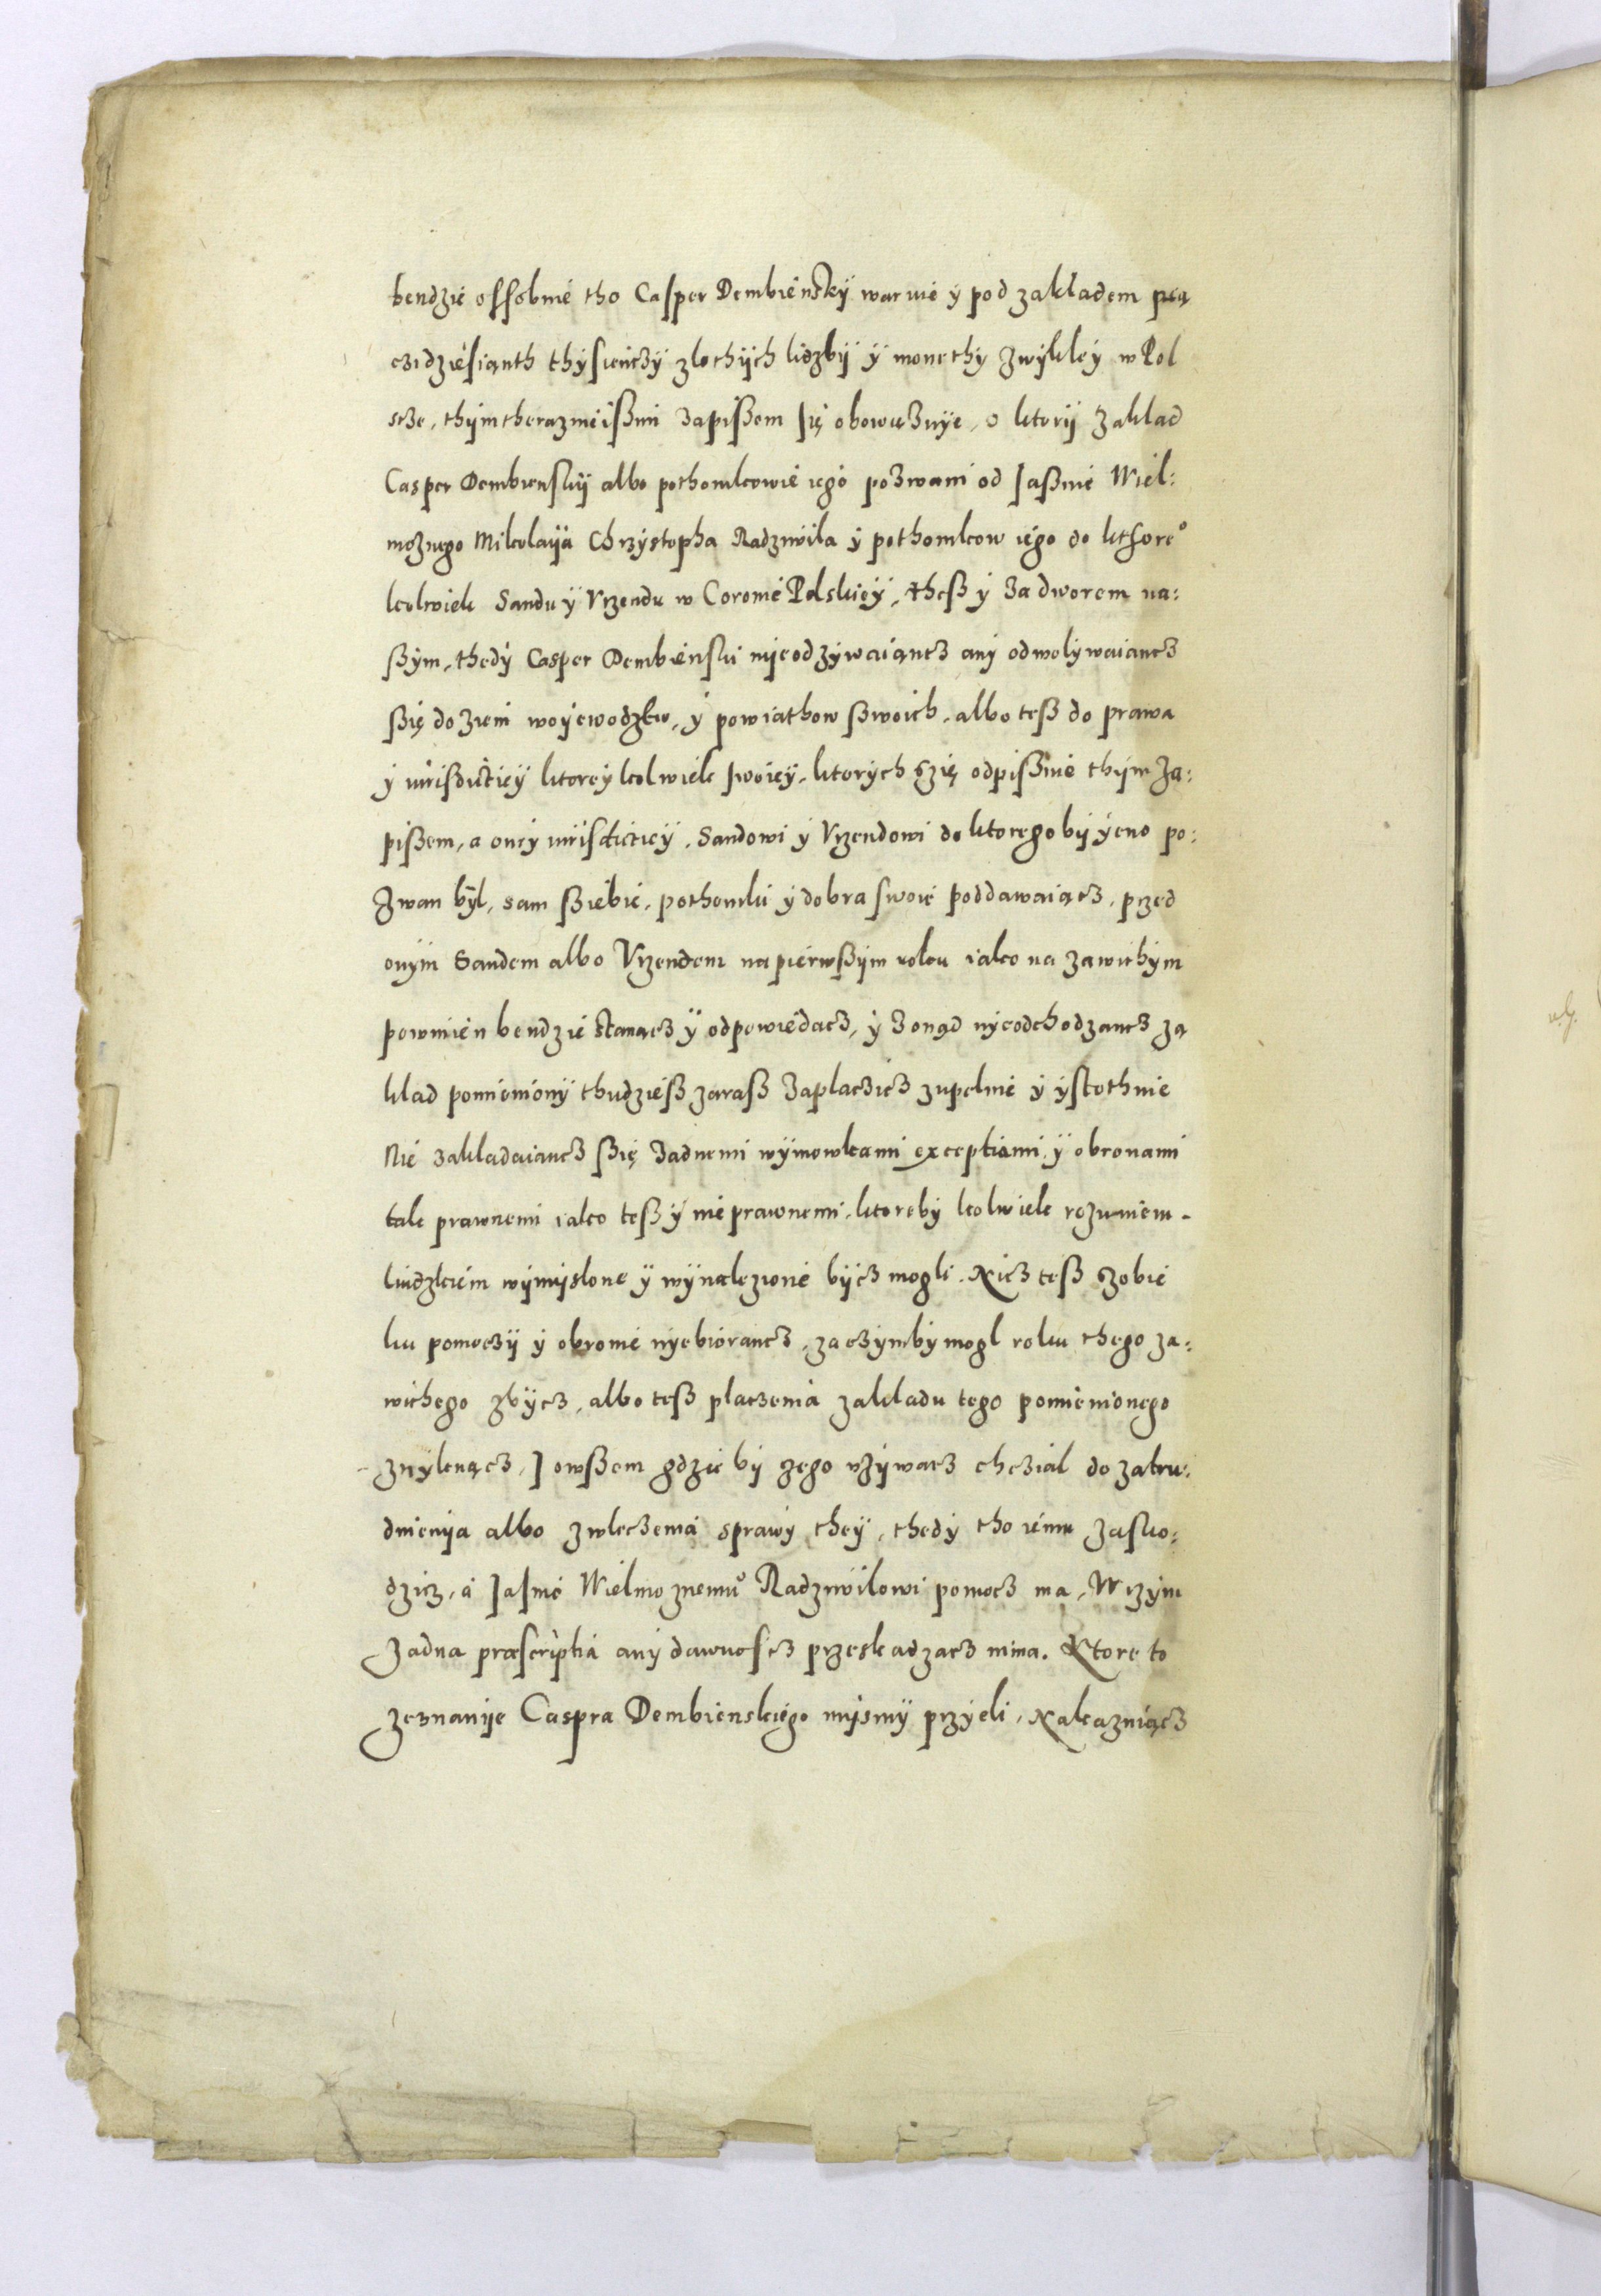 bendzie ossobnie tho Casper Dembiensky warnie ÿ pod zakladem pię
czidziesianth thÿsienczÿ zlothÿch lidzbÿ ÿ monethÿ zwÿkleÿ w Pol
scze, thÿm therazmeißim zapißem się obowiezuÿe, o ktorÿ zaklad
Casper Dembienskÿ albo pothomkowie iego pozwani od Jaßnie Wiel:
moznego Mikolaÿa Chrzÿstopha Radziwila ÿ pothomkow iego do kthore°
kolwiek Sandu ÿ Vrzendu w Coronie Polskieÿ, theß ÿ za dworem na:
ßÿm, thedÿ Casper Dembienski nieodzÿwaiancz anÿ odwolÿwaiancz
ßię do ziem woÿewodztw, ÿ powiathow ßwoich, albo teß do prawa
ÿ iurisdictieÿ ktoreÿkolwiek swoieÿ, ktorÿch szię odpißuie thÿm za:
pißem, a oneÿ iurisdicticÿ, Sandowi ÿ Vrzendowi do ktorego bÿ ÿeno po:
zwan bÿl, sam ßiebie, pothomki ÿ dobra swoie poddawaiącz, przed
onÿm Sandem albo Vrzendem na pierwßÿm roku iako na zawithÿm
powinien bendzie stanącz ÿ odpowiedacz, ÿ zonąd nÿeodchodzancz za
klad pomienionÿ thudzieß zaraß zaplaczicz zupelnie ÿ ÿstothnie
Nie zakladaiancz ßię zadnemi wÿmowkami exceptiami ÿ obronami
tak prawnemi iako teß ÿ nieprawnemi, ktorebÿ kolwiek rozumem
ludzkiem wÿmÿslone ÿ wÿnalezione bÿcz mogli. Nicz teß szobie
ku pomoczÿ ÿ obronie nÿebiorancz, zaczÿmbÿ mogl roku thego za:
withego zbÿcz, albo teß placzenia zakladu tego pomienionego
znÿknącz, J owßem gdzie bÿ zego vzÿwacz chczial do zatru:
dnienÿa albo zwleczenia sprawÿ theÿ, thedÿ tho iemu zasko:
dzicz, a Jasnie Wielmoznemu Radziwilowi pomocz ma, W czÿm
zadna præscriptia anÿ dawnoscz przeskadzacz nima. Ktore to
zeznanÿe Caspra Dembienskiego mÿsmÿ przÿeli, Nakazuiącz